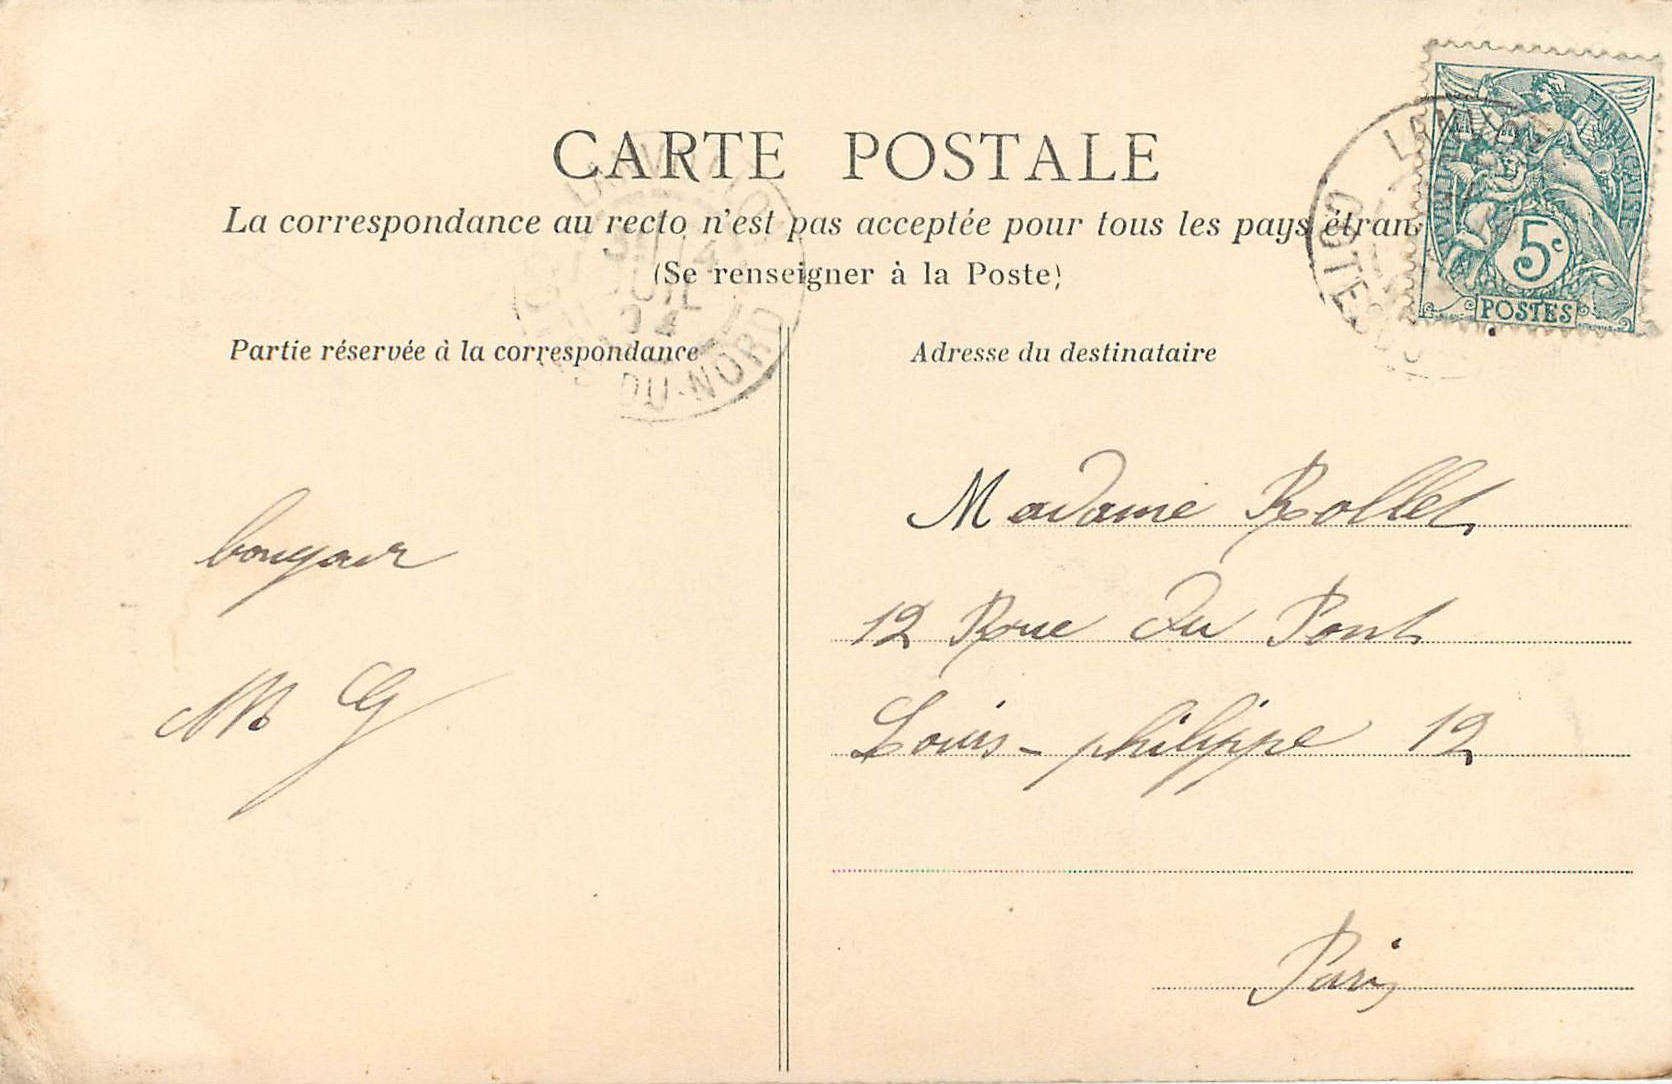 CARTE POSTALE
La correspondance au recto n'est pas acceptée pour tous les pays étran
(Se renseigner à la Poste)
Partie réservée à la correspondance
Adresse du destinataire
RÉPUBLIQUE FRANÇAISE
5c
POSTES
DU-NORD
Madame Rollet
12 Rue du Pont
Louis-philippe 12
Paris
bonjour